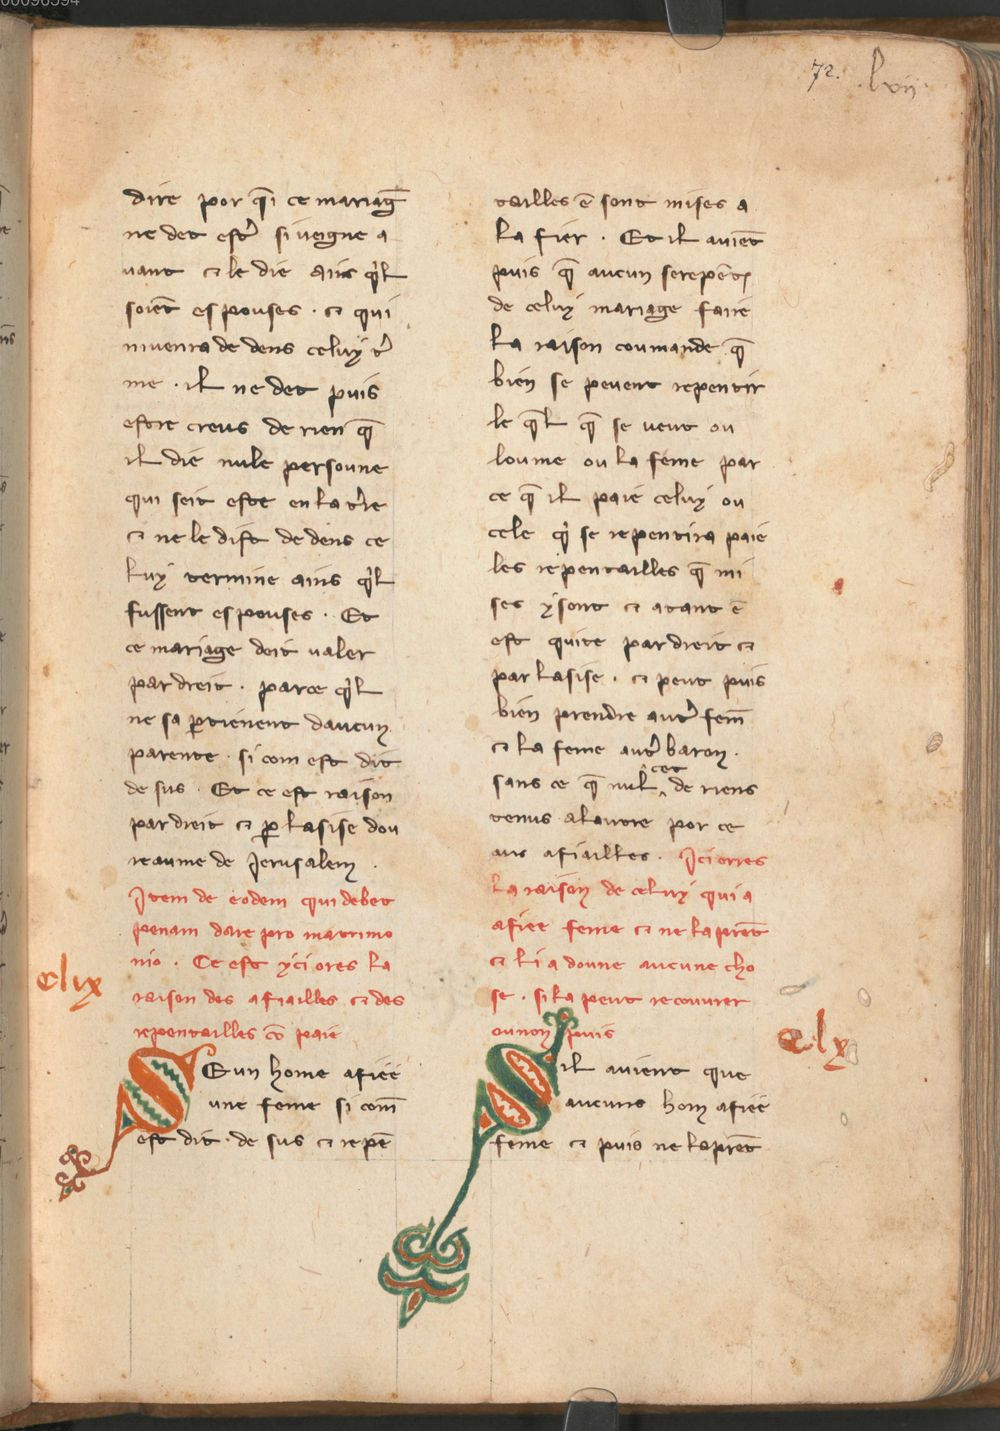 00096594
72. lxvii
dire por q̅i ce mariag̅
ne det estr̉ si veigne a
vant ⁊ le die ains q̓l
soie̅t espouses . ⁊ qui
nivenra de dens celuy t̓
me . il ne det puis
estre creus de rien q̅
il die nule persoune
qui seit este en la t̓re
⁊ ne le dist de dens ce
luy termine ains q̓l
fussent espouses . Et
ce mariage doit valer
par dreit . parce q̓l
ne sa ꝑtienent daucun
parente . si com est dit
de sus . Et ce est raison
par dreit ⁊ ꝑ lasise dou
reaume de Jerusalem .
Item de eodem qui debet
penam dare pro matrimo
nio . Ce est yci ores la
raison des afiailles ⁊ des
repentailles co̅ paie
clix
SE un home afiee
une feme si com̅
est dit . de sus ⁊ repe̅
tailles e̅ sont mises a
la fier . Et il avie̅t
puis q̅ aucun se repe̅t
de celuy mariage faire
la raison coumande q̅
bien se pevent repentir
le q̅l q̅ se veut ou
loume ou la feme par
ce q̅ il paie celuy ou
cele q̓ se repentira paie
les repentailles q̅ mi
ses y sont ⁊ atant e̅
est quite par dreit ⁊
par lasise . ⁊ peut puis
bien prendre autr̉ fem̅
⁊ la feme autr̉ baron .
sans ce q̅ nul cet de riens
tenus a lautre por ce
aus afiailles . Ici orres
la raison de celuy qui a
afiee feme ⁊ ne la pre̅t
⁊ li a doune aucune cho
se . si la peut recouvrer
ou non puis
clx
SIl avient que
aucuns hom afiee
feme ⁊ puis ne la pre̅t